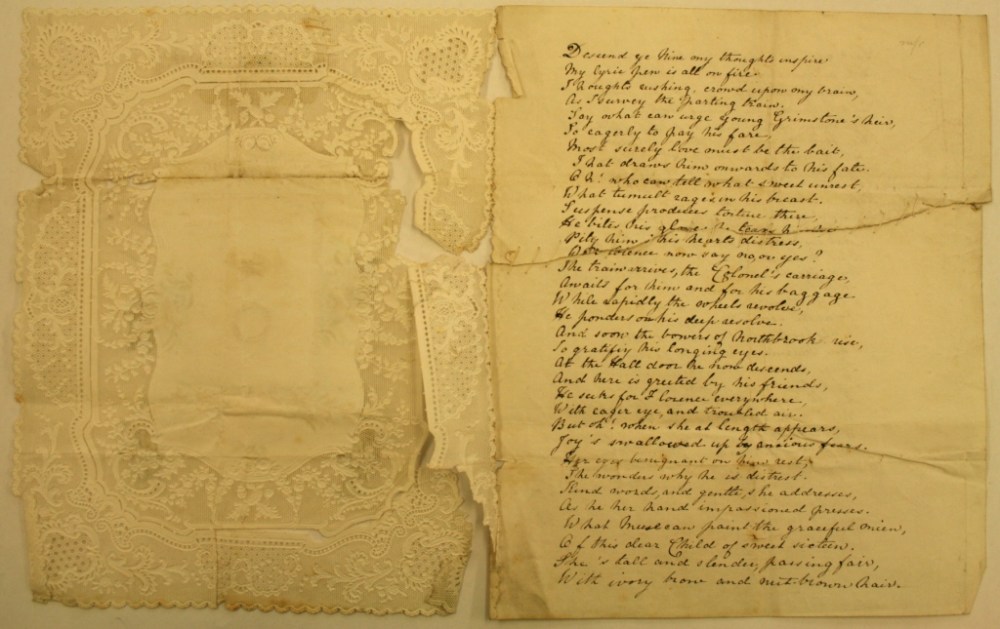 Descend ye Nine my thoughts inspire
My lyric Pen is all on fire
Thoughts rushing, crowd upon my brain,
As I survey the parting train.
Say what can urge young Grimstone's heir,
So eagerly to pay his fare,
Most surely love must be the bait,
That draws him onwards to his fate.
Oh! who can tell what sweet unrest,
What tumult rages in his breast.
Suspense produces torture there,
He bites his glove he tears his
Pity him his hearts distress,
Will Florence now say no, or yes?
The train arrives, the Colonel's carriage,
Awaits for him and for his baggage
While rapidly the wheels revolve,
He ponders on his deep resolve.
And soon the bowers of Northbrook rise,
To gratifiy his longing eyes.
At the Hall door he now descends,
And here is greeted by his friends,
He seeks for Florence everywhere,
With eager eye, and troubled air.
But oh! when she at length appears,
Joy's swallowed up by anxious fears.
Her eyes benignant on him rest,
She wonders why he is distrest.
Kind words, and gentle, she addresses,
As he her hand impassioned presses.
What Muse can paint the graceful mien,
Of this dear Child of sweet sixteen.
She's tall and slender, passing fair,
With ivory brow and nut-brown hair.